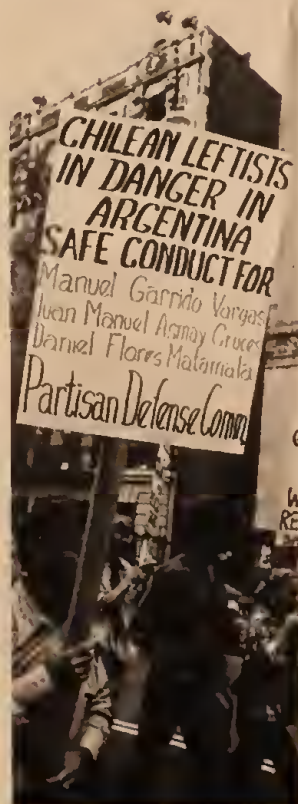 CHILEAN LEFTISTS
IN DANGER IN
ARGENTINA
SAFE CONDUCT FOR
Manuel Garrido Vargas
Juan Manuel Cruces
Daniel Flores Matamala
Partisan Defense Comm.